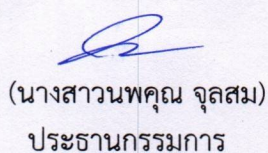 (นางสาวนพคุณ จุลสม)
ประธานกรรมการ